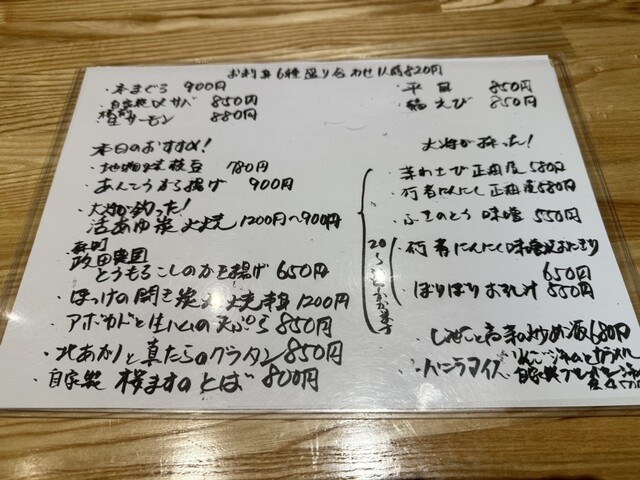 お刺身6種盛り合わせ1人前820円
・本まぐろ 900円
・自家製〆サバ 850円
生サーモン 880円
・平目 850円
・縞えび 850円
本日のおすすめ!
枝豆 780円
・あんこうから揚げ 900円
・大将が釣った!
活あゆ炭火焼 1200円〜900円
とうもろこしのかき揚げ 650円
・ほっけの開き炭火焼半身 1200円
・アボカドと生ハムの天ぷら 850円
・北あかりと真たらのグラタン 850円
・自家製 桜ますのとば 800円
大将が採った!
・葉わさび正油 580円
・行者にんにく正油 580円
・ふきのとう味噌 550円
・行者にんにく味噌おにぎり
650円
550円
・じゃこと高菜の炒め飯 680円
・バニラアイス